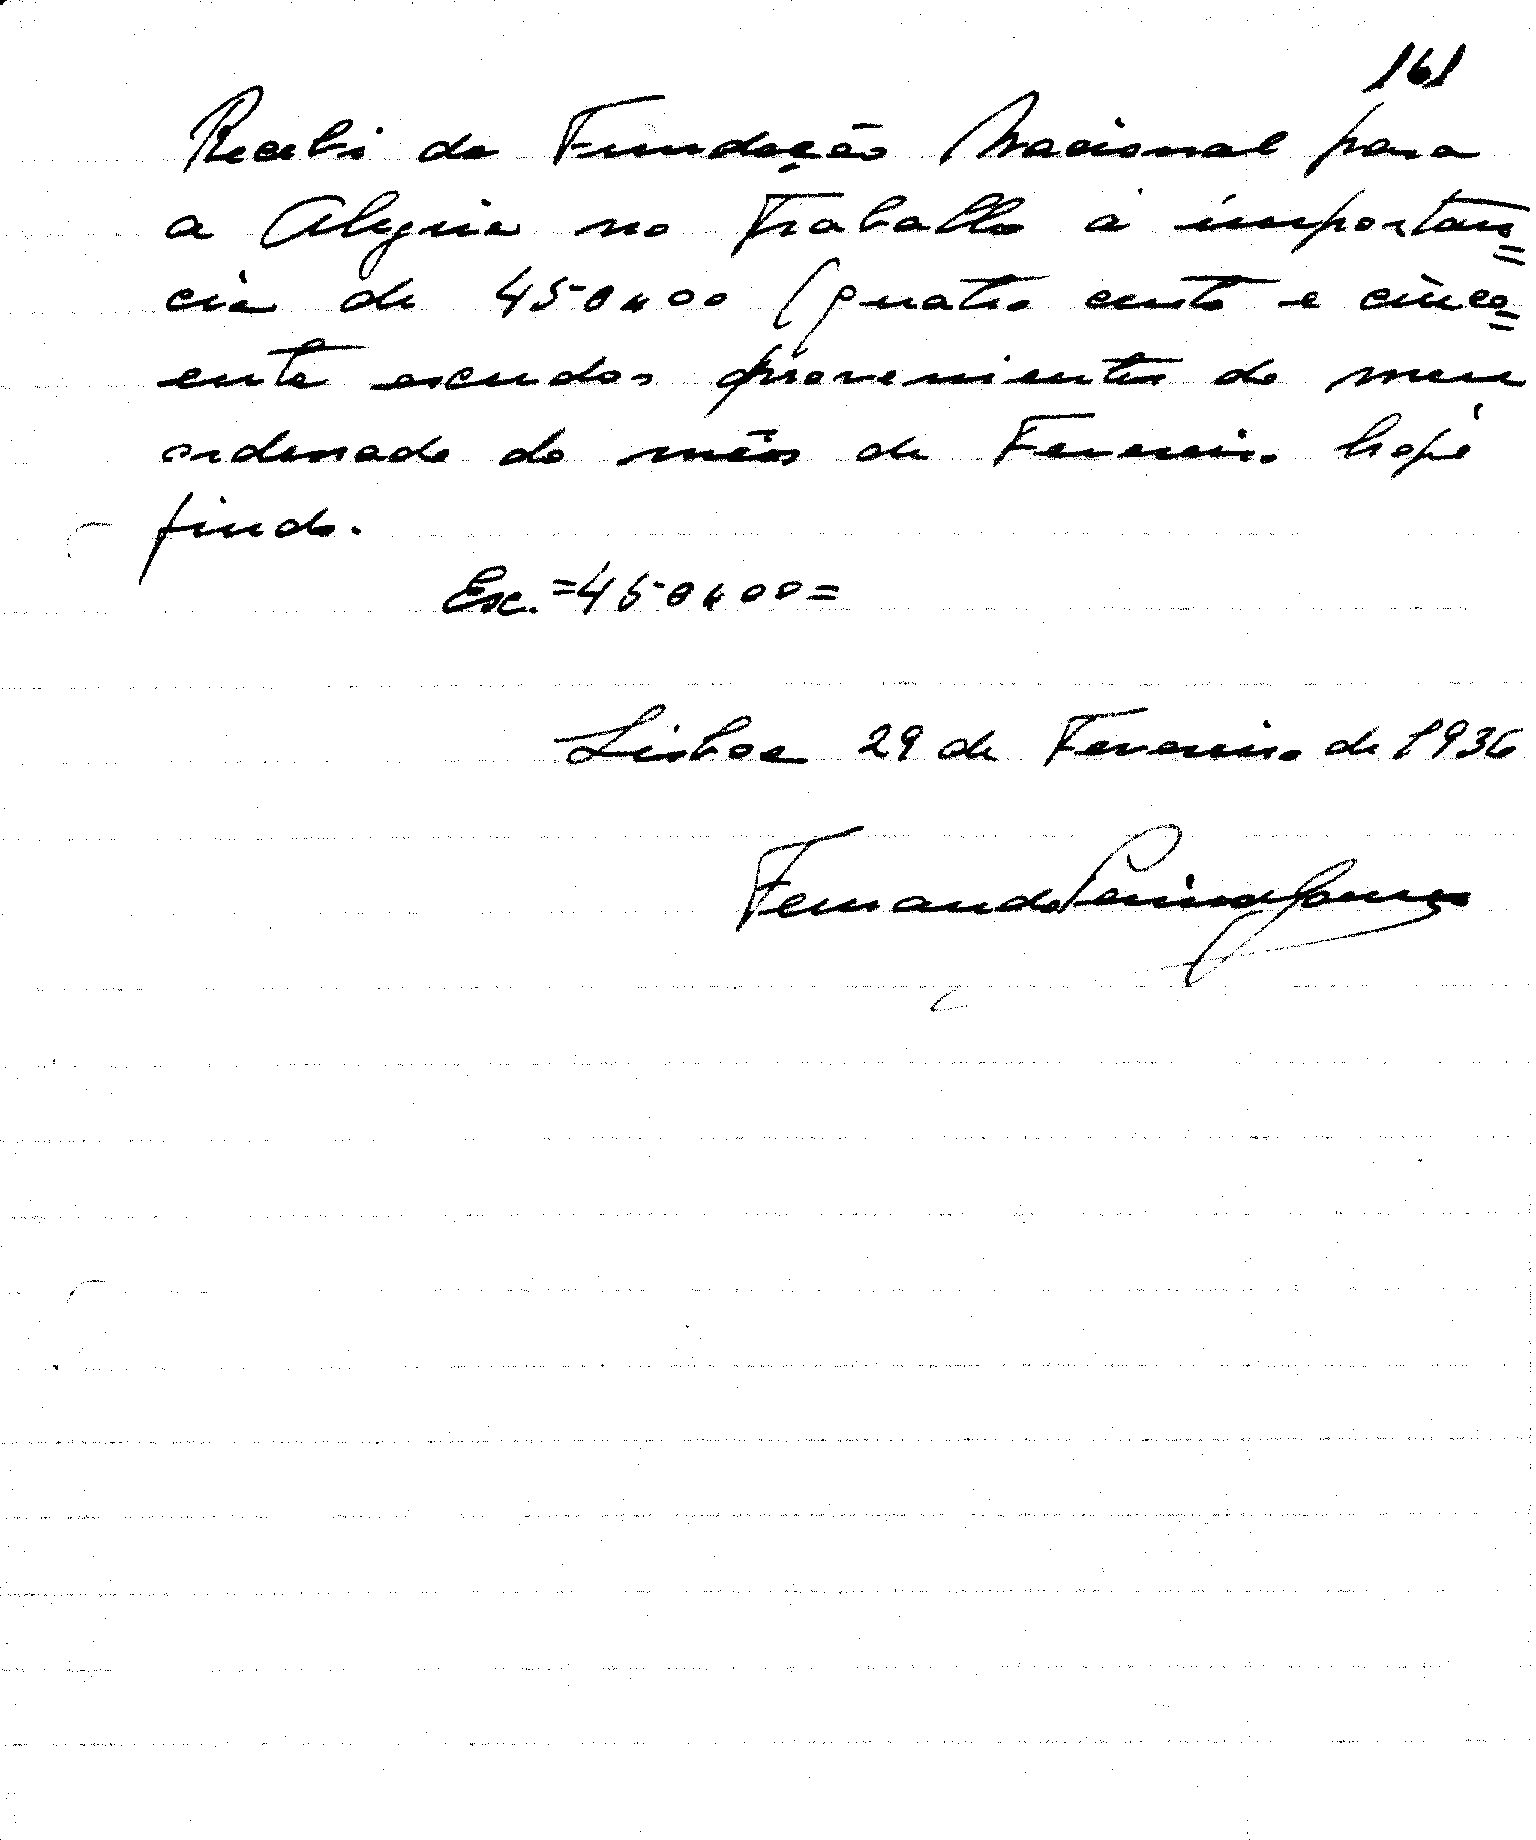 161
Recebi da Fundação Nacional para
a Alegria no Trabalho a importan=
cia de 450$00 (quatro cento e cinco=
enta escudos provenientes do meu
ordenado do mês de Fevereiro hoje
findo.
Esc. =450$00=
Lisboa 29 de Fevereiro de 1936
Fernando